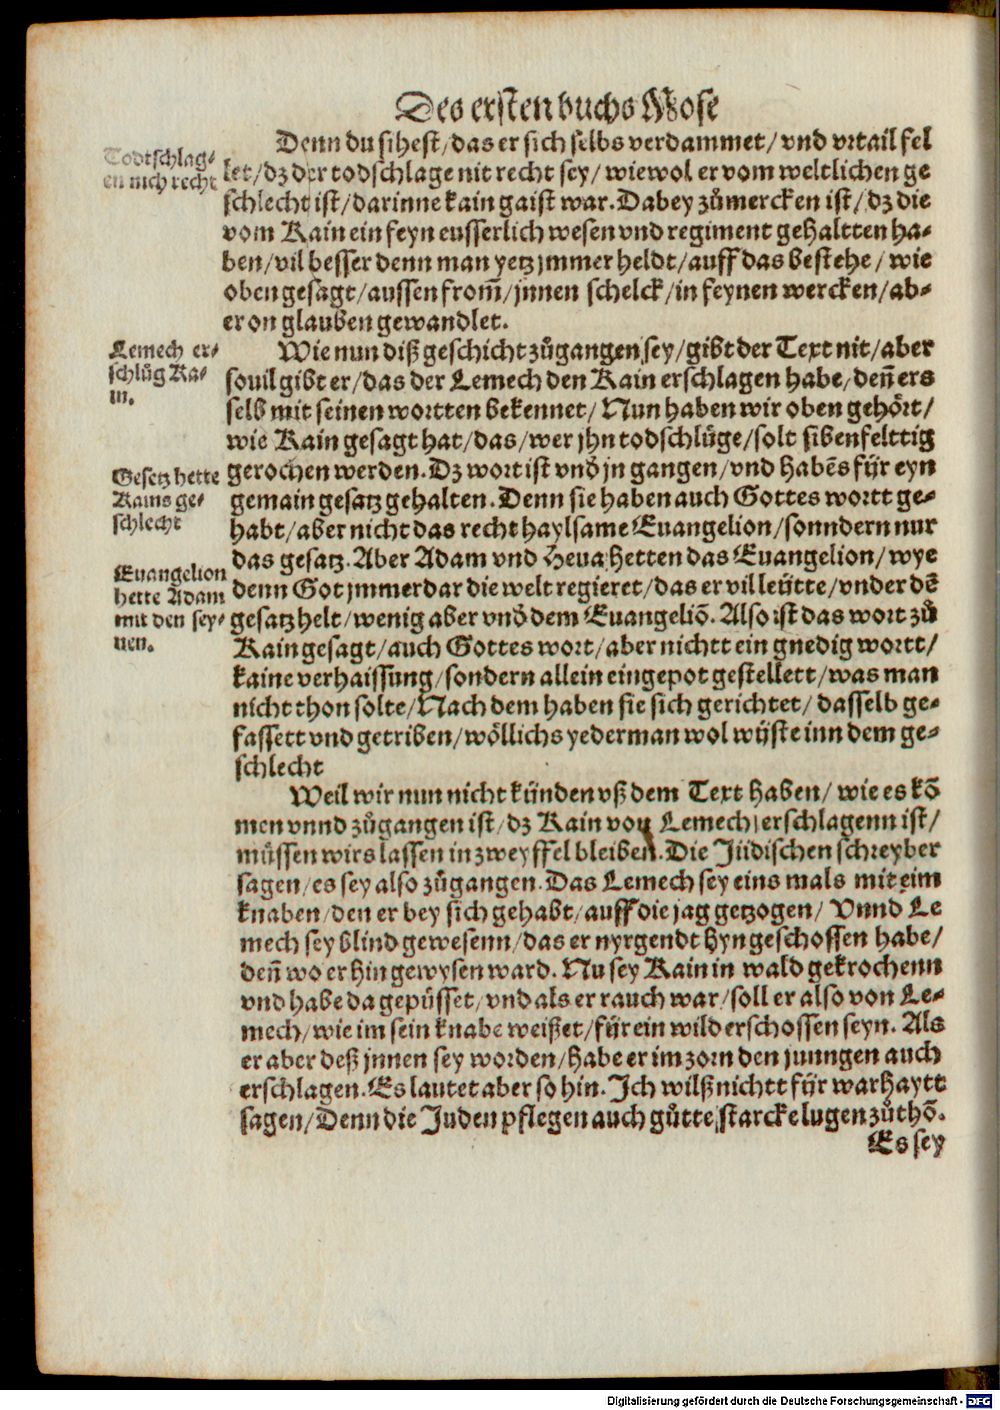 Des ersten buchs Mose
Denn du sihest/das er sich selbs verdammet/ vnd vrtail fel
let/dz der todschlage nit recht sey/ wiewol er vom weltlichen ge
schlecht ist/darinne kain gaist war. Dabey zůmercken ist/dz die
vom Kain ein feyn eusserlich wesen vnd regiment gehaltten ha-
ben/vil besser denn man yetz jmmer heldt/auff das bestehe/ wie
oben gesagt/aussen from̃/jnnen schelck/in feynen wercken/ab-
er on glauben gewandlet.
Todtschlag-
en nich recht
Wie nun diß geschicht zůgangen sey/gibt der Text nit/aber
souil gibt er/das der Lemech den Kain erschlagen habe/deñ ers
selb mit seinen wortten bekennet/ Nun haben wir oben gehört/
wie Kain gesagt hat/das/wer jhn todschlüge/solt sibenfelttig
gerochen werden. Dz wort ist vnd̕ jn gangen/vnd habẽs für eyn
gemain gesatz gehalten. Denn sie haben auch Gottes wortt ge-
habt/aber nicht das recht haylsame Euangelion/sonndern nur
das gesatz. Aber Adam vnd Heua hetten das Euangelion/wye
denn Got jmmerdar die welt regieret/das er vil leütte/vnder dẽ
gesatz helt/wenig aber vnd̕ dem Euangeliõ. Also ist das wort zů
Kain gesagt/auch Gottes wort/aber nichtt ein gnedig wortt/
kaine verhaissung/sondern allein ein gepot gestellett/was man
nicht thon solte/Nach dem haben sie sich gerichtet/ dasselb ge-
fassett vnd getriben/wöllichs yederman wol wüste inn dem ge-
schlecht
Lemech er-
schlůg Ka-
in.
Gesetz hette
Kains ge-
schlecht
Euangelion
hette Adam
mit den sey-
nen.
Weil wir nun nicht künden vß dem Text haben/ wie es kõ
men vnnd zůgangen ist/dz Kain von Lemech erschlagenn ist/
müssen wirs lassen in zweyffel bleiben. Die Jüdischen schreyber
sagen/es sey also zůgangen. Das Lemech sey eins mals mit eim
knaben/den er bey sich gehabt/auff die jag getzogen/ Vnnd Le
mech sey blind gewesenn/das er nyrgendt hyn geschossen habe/
deñ wo er hin gewysen ward. Nu sey Kain in wald gekrochenn
vnd habe da gepüsset/vnd als er rauch war/soll er also von Le-
mech/wie im sein knabe weißet/für ein wild erschossen seyn. Als
er aber deß jnnen sey worden/habe er im zorn den junngen auch
erschlagen. Es lautet aber so hin. Jch wilß nichtt für warhaytt
sagen/Denn die Juden pflegen auch gůtte starcke lugen zů thõ.
Es sey
Digitalisierung gefördert durch die Deutsche Forschungsgemeinschaft - DFG